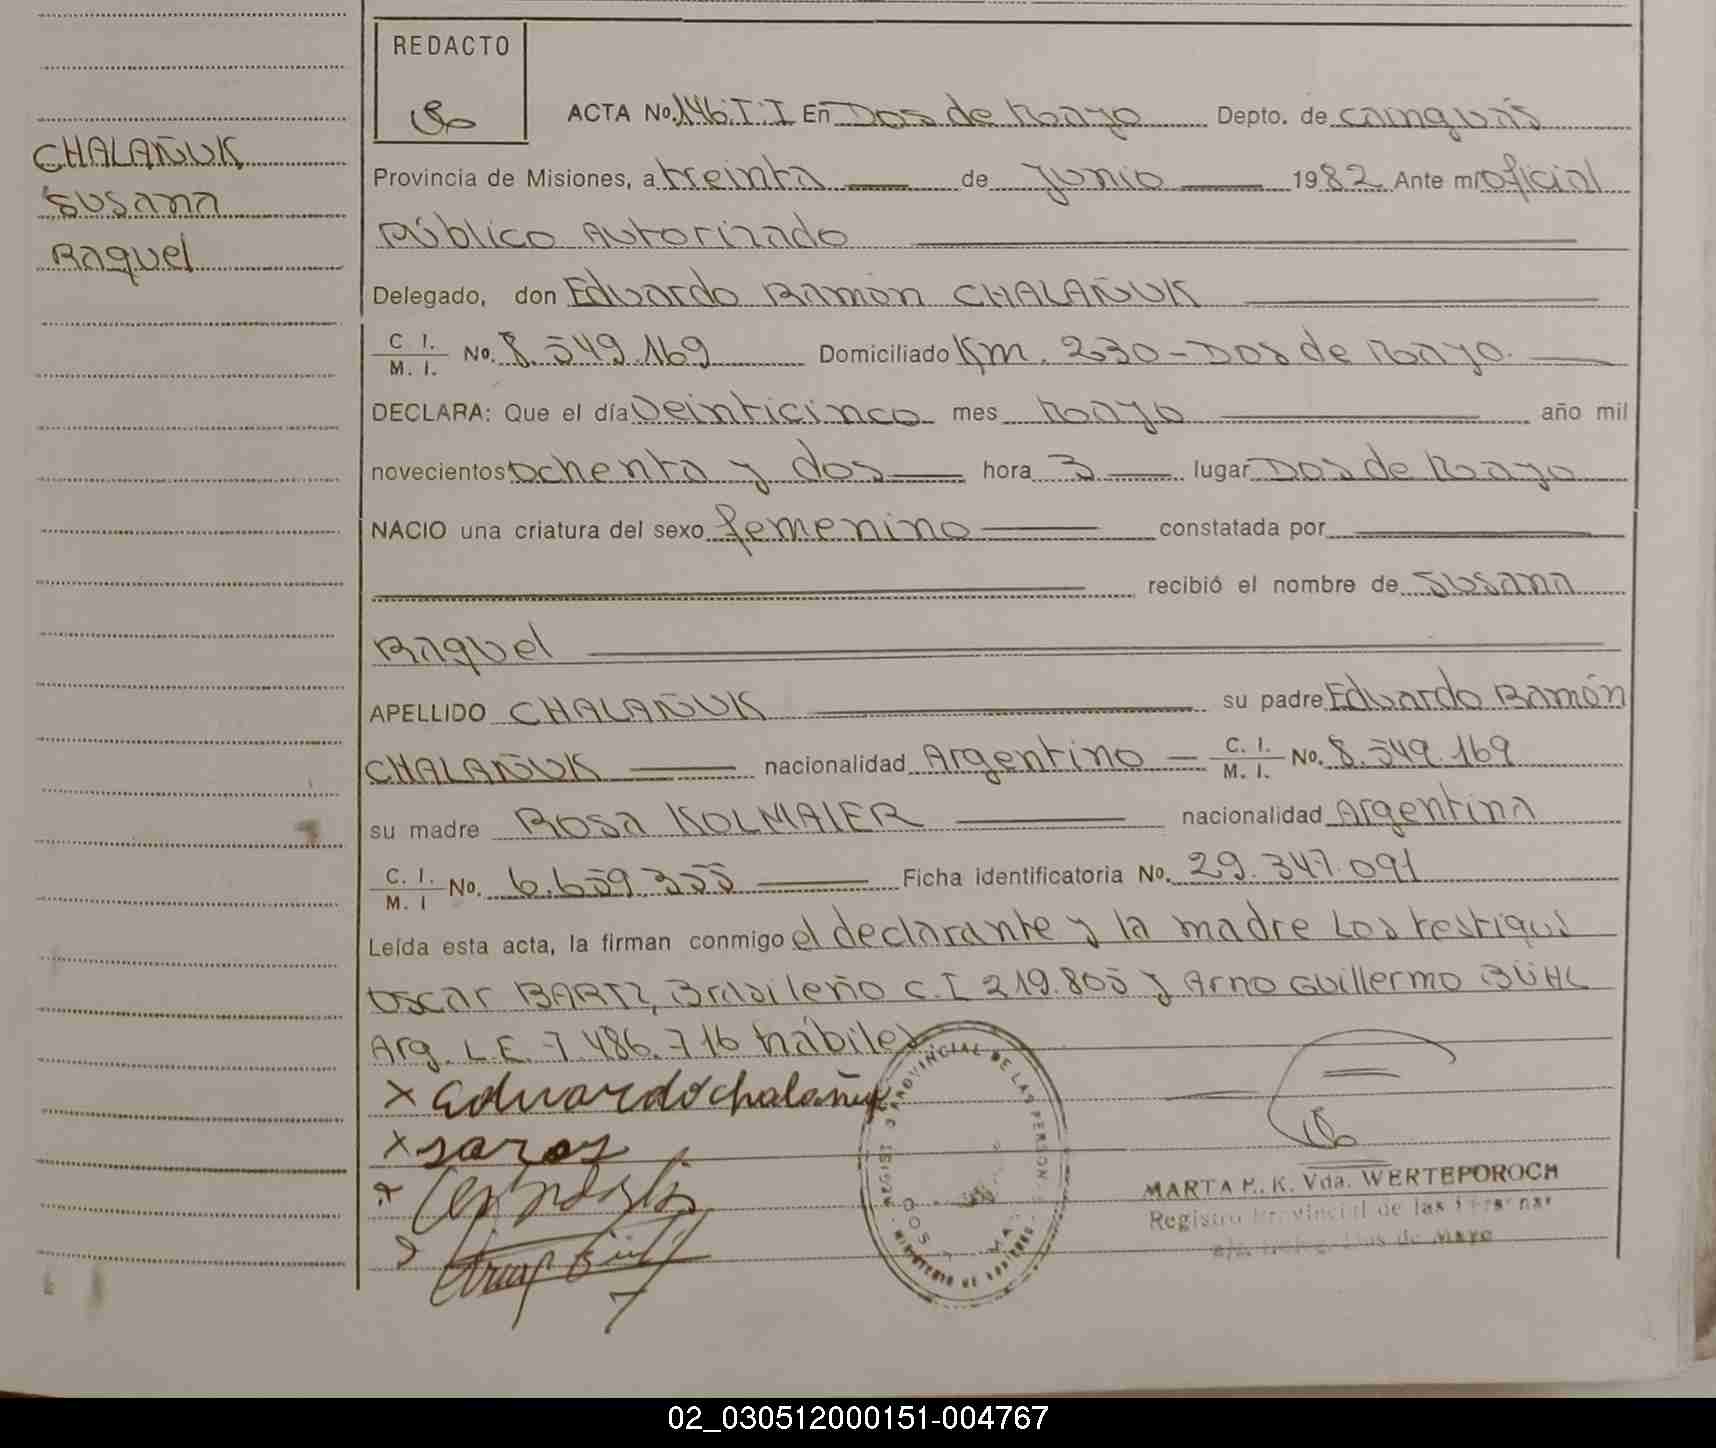 REDACTO
ACTA No. 146.T.I En Dos de Mayo Depto. de Cainguás
CHALAÑUK
SUSANA
Raquel
Provincia de Misiones, a treinta de Junio 1982 Ante mí oficial
Público Autorizado
Delegado, don Eduardo Ramón CHALAÑUK
C. I.
M. I. No. 8.549.169 Domiciliado Km. 230 - Dos de Mayo.
DECLARA: Que el día Veinticinco mes Mayo año mil
novecientos ochenta y dos hora 3 lugar Dos de Mayo
NACIO una criatura del sexo femenino constatada por
recibió el nombre de Susana
Raquel
APELLIDO CHALAÑUK su padre Eduardo Ramón
CHALAÑUK nacionalidad Argentino C. I.
M. I. No. 8.549.169
su madre Rosa KOLMAIER nacionalidad Argentina
C. I.
M. I No. 6.659.355 Ficha identificatoria No. 29.347.091
Leída esta acta, la firman conmigo el declarante y la madre Los testigos
Oscar BARTZ, Brasileño C.I 219.805 y Arno Guillermo BÜHL
Arg. L.E. 7.486.716 hábiles
x Eduardo chalañuk
MARTA E. K. Vda. WERTEPOROCH
Registro Provincial de las Personas
Dos de Mayo
02_030512000151-004767